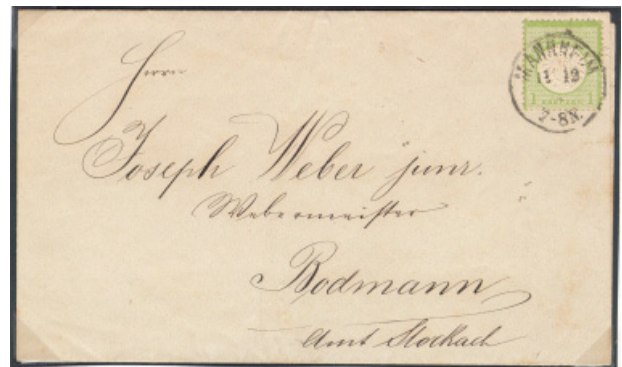 MANNHEIM
11 12
7-8N.
1 KREUZER 1
Herrn
Joseph Weber junr.
Webermeister
Bodmann
Amt Stockach